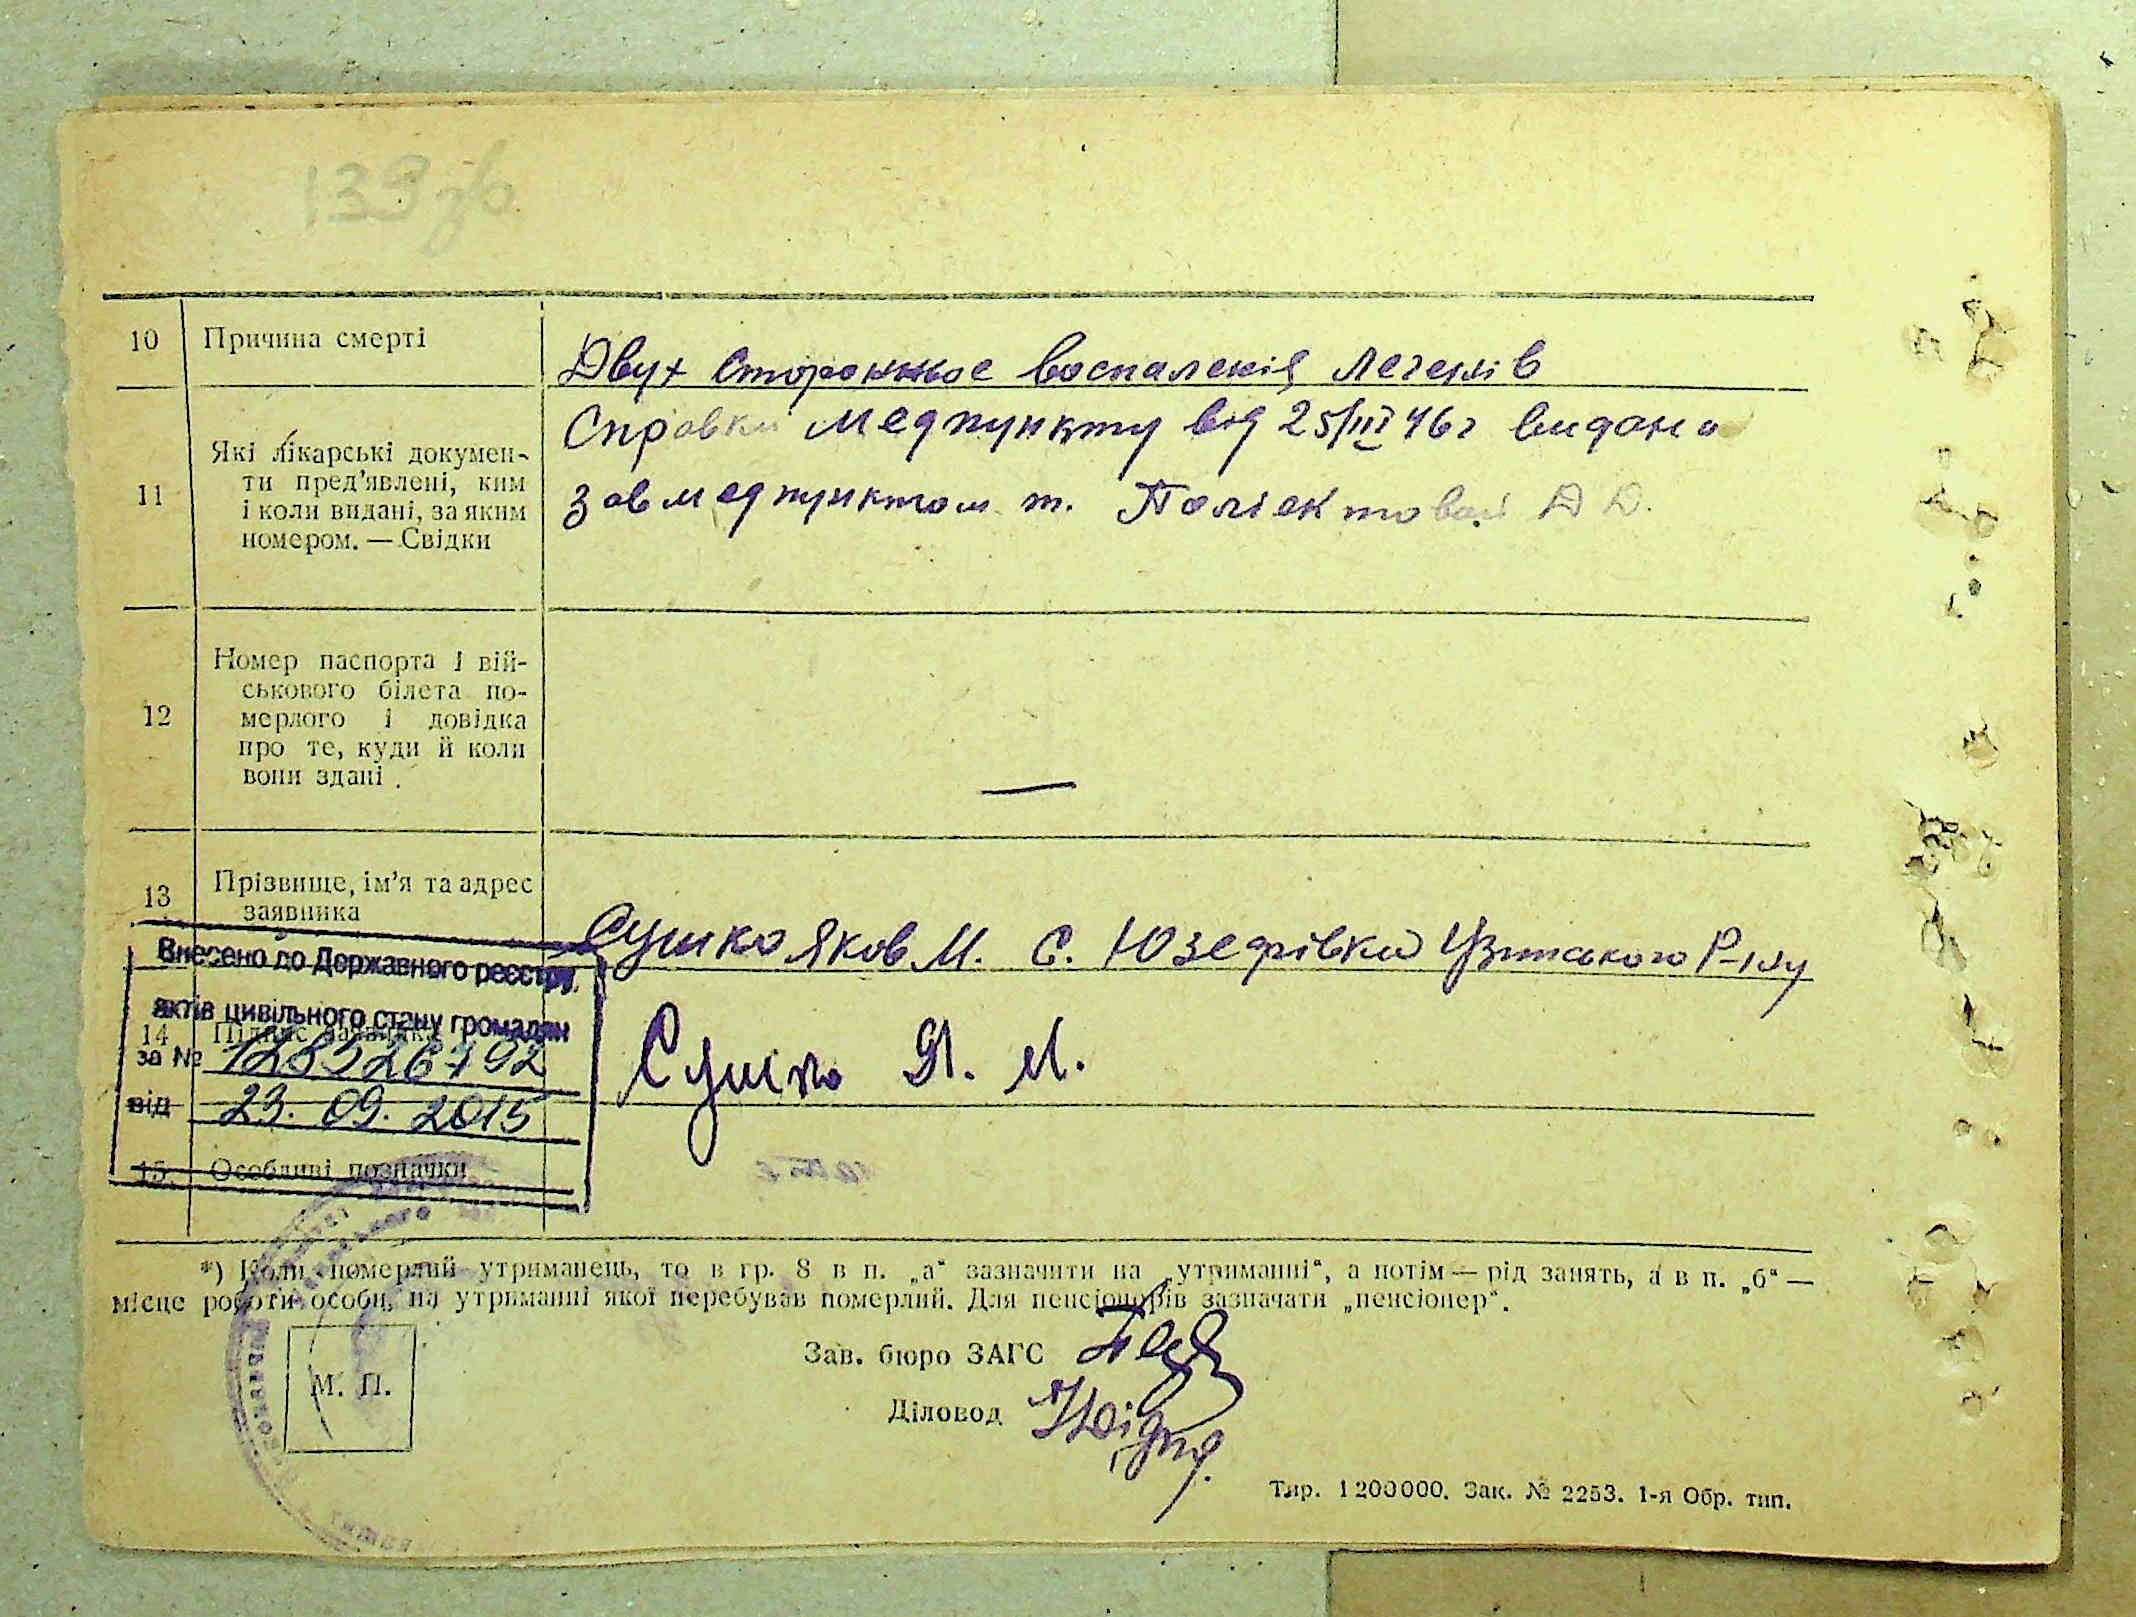 133зв
10 Причина смерті
Двух стороннное воспаленія легенів
11 Які лікарські докумен-
ти пред'явлені, ким
і коли видані, за яким
номером. — Свідки
Справки медпункту від 25/III 46г видана
завмедпунктом т. Поліектовай А Д.
12 Номер паспорта і вій-
ськового білета по-
мерлого і довідка
про те, куди й коли
вони здані .
—
13 Прізвище, ім'я та адрес
заявника
Сушко Яков М. С. Юзефівка Узинського Р-ну
Внесено до Державного реєстру
актів цивільного стану громадян
14 Підпис заявника
за №
від 23. 09. 2015
Сушко Я. М.
15. Особливі позначки
*) Коли померлий утриманець, то в гр. 8 в п. „а“ зазначити на „утриманні“, а потім — рід занять, а в п. „б“ —
місце роботи особи, на утриманні якої перебував померлий. Для пенсіонерів зазначати „пенсіонер“.
М. П.
Зав. бюро ЗАГС
Діловод
Тир. 1200000. Зак. № 2253. 1-я Обр. тип.